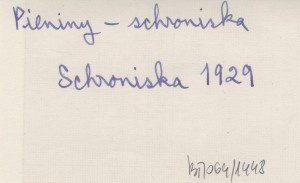 Pieniny – schroniska
Schroniska 1929
BT/064/1448